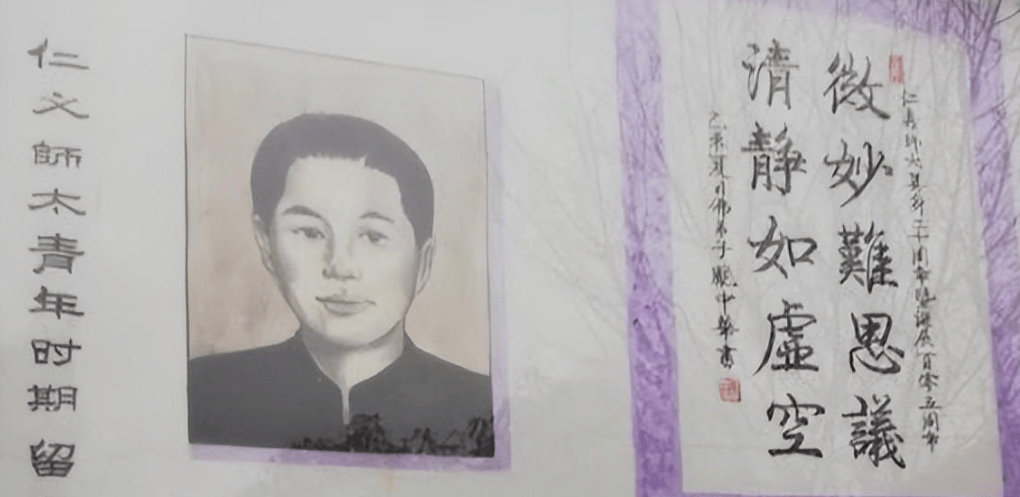 仁义師太青年时期留
仁義師太 十周年暨誕辰百零五周年
微妙難思議
清静如虛空
乙未夏月佛弟子 中 書